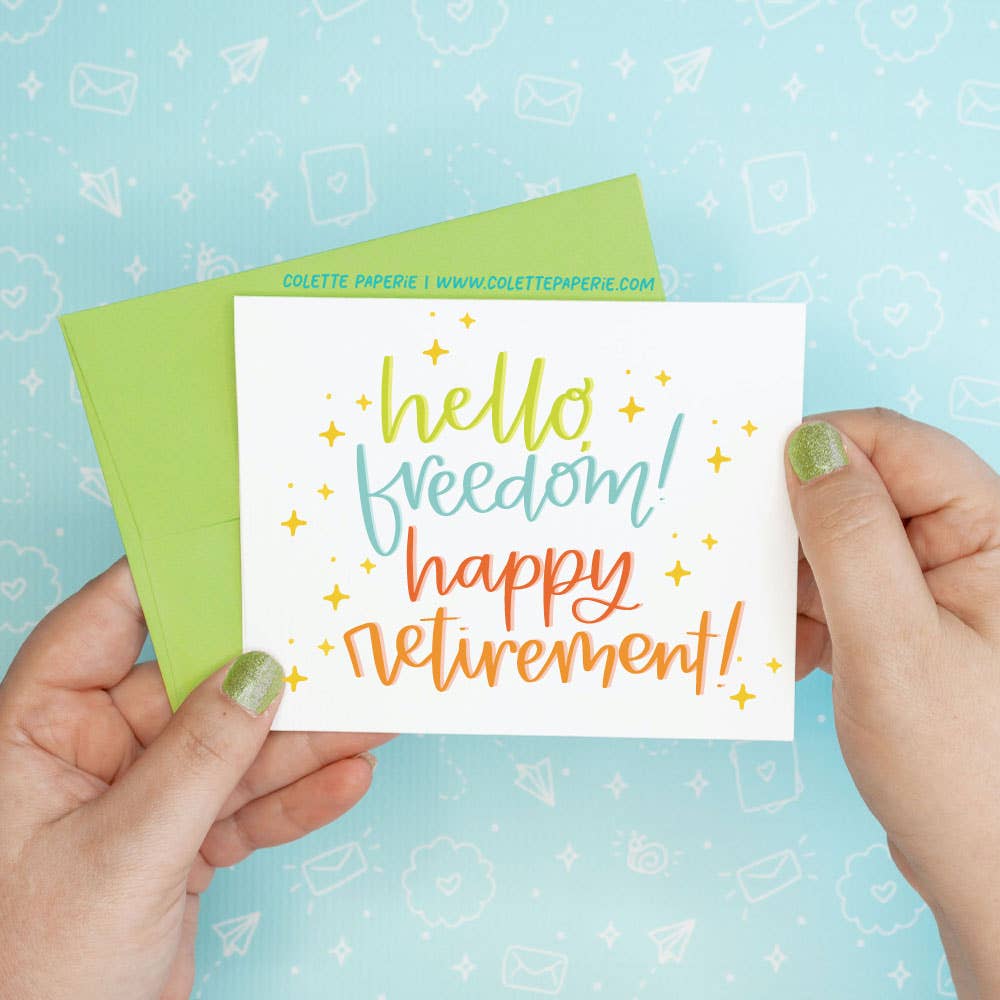 COLETTE PAPERiE | WWW.COLETTEPAPERiE.COM
hello,
freedom!
happy
retirement!